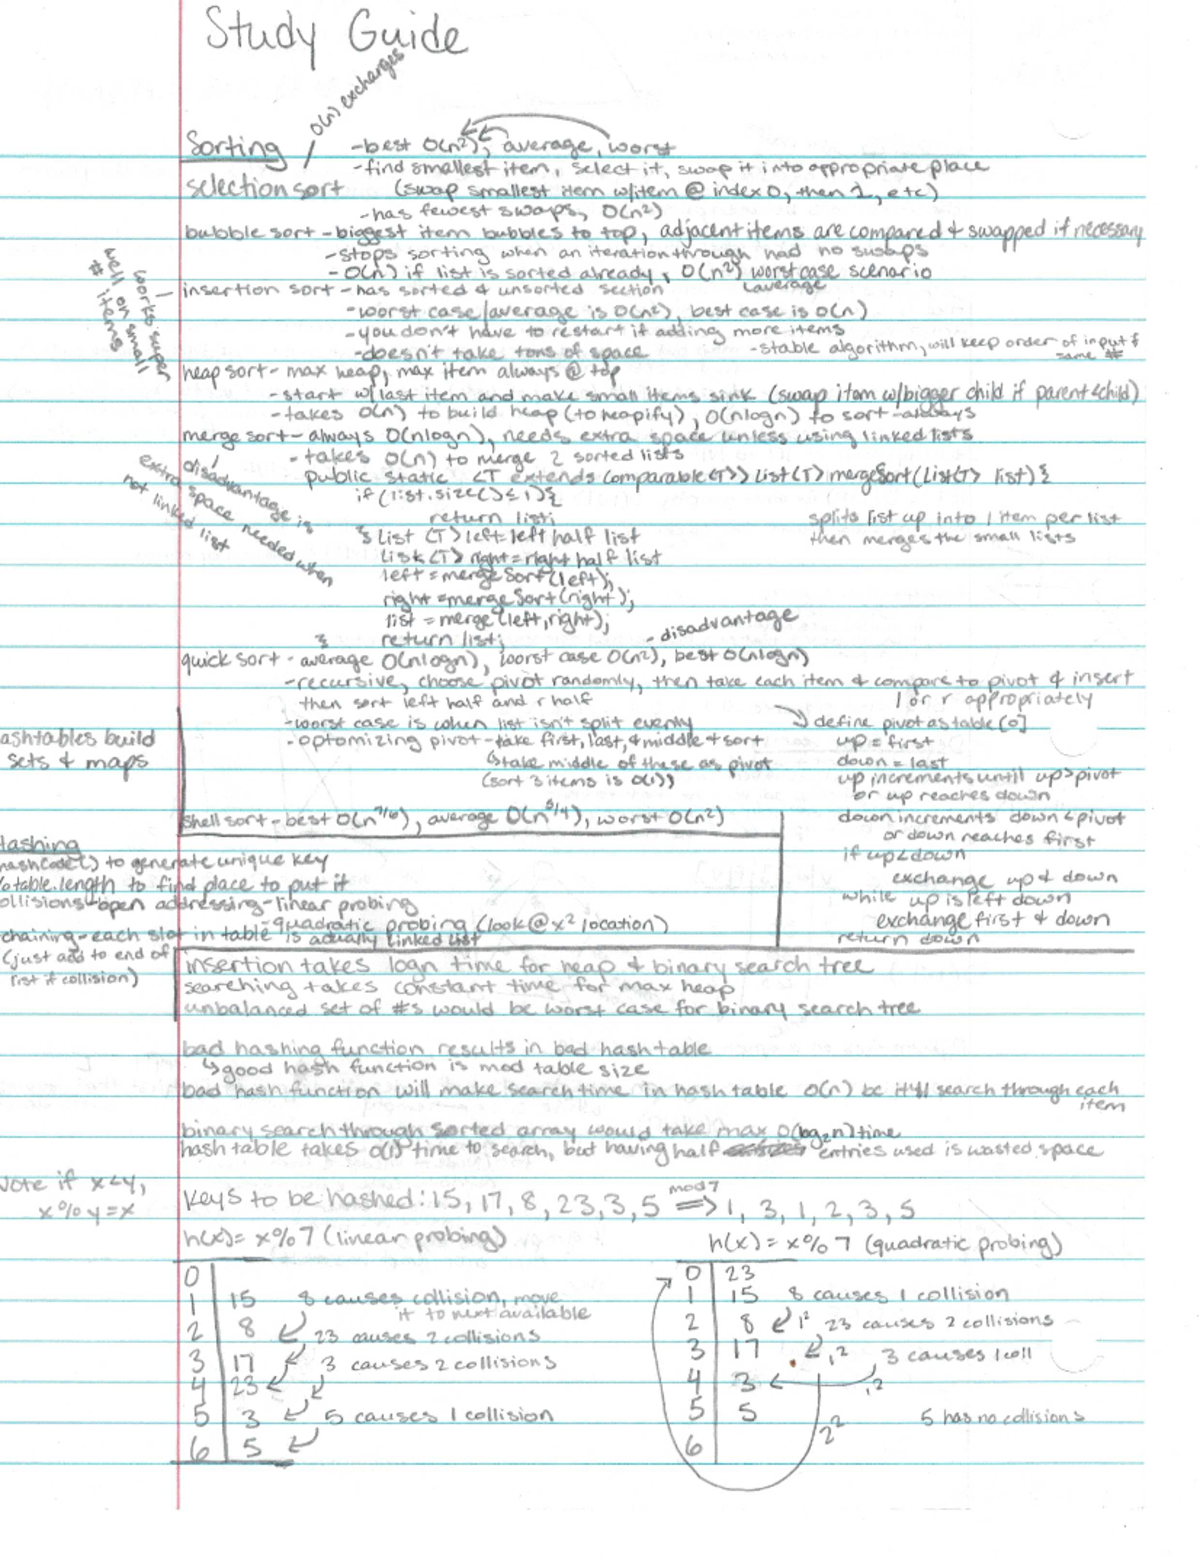 Study Guide
O(n) exchanges
Sorting
-best O(n²), average, worst
-find smallest item, select it, swap it into appropriate place
selection sort (swap smallest item w/item @ index 0, then 1, etc)
-has fewest swaps, O(n²)
bubble sort - biggest item bubbles to top, adjacent items are compared & swapped if necessary
-stops sorting when an iteration through had no swaps
- O(n) if list is sorted already, O(n²) worst case scenario
& average
insertion sort - has sorted & unsorted section
works super well on small # items
-worst case/average is O(n²), best case is O(n)
-you don't have to restart if adding more items
-doesn't take tons of space
-stable algorithm, will keep order of input if same #
heap sort - max heap, max item always @ top
-start w/last item and make small items sink (swap item w/bigger child if parent<child)
-takes O(n) to build heap (to heapify), O(nlogn) to sort-always
merge sort - always O(nlogn), needs extra space unless using linked lists
disadvantage is extra space needed when not linked list
- takes O(n) to merge 2 sorted lists
public static <T extends Comparable<T>> List<T> mergeSort(List<T> list){
if (list.size() ≤ 1){
return list;
} List<T> left = left half list
List<T> right = right half list
left = mergeSort(left);
right = mergeSort(right);
list = merge(left, right);
} return list;
splits list up into 1 item per list
then merges the small lists
- disadvantage
quick sort - average O(nlogn), worst case O(n²), best O(nlogn)
-recursive, choose pivot randomly, then take each item & compare to pivot & insert
l or r appropriately
then sort left half and r half
-worst case is when list isn't split evenly
-optomizing pivot-take first, last, & middle & sort
take middle of these as pivot
(sort 3 items is O(1))
define pivot as table[0]
up = first
down = last
up increments until up>pivot
or up reaches down
down increments down<pivot
or down reaches first
if up<down
exchange up & down
while up is left down
exchange first & down
return down
shell sort - best O(n^7/6), average O(n^5/4), worst O(n²)
ashtables build
sets & maps
Hashing
hashCode() to generate unique key
% table.length to find place to put it
ollisions-open addressing-linear probing
-quadratic probing (look @ x² location)
chaining-each slot in table is actually linked list
(just add to end of
list if collision)
insertion takes logn time for heap & binary search tree
searching takes constant time for max heap
unbalanced set of #s would be worst case for binary search tree
bad hashing function results in bad hash table
good hash function is mod table size
bad hash function will make search time in hash table O(n) bc it'll search through each
item
binary search through sorted array would take max O(log₂n) time
hash table takes O(1) time to search, but having half entries used is wasted space
Note if x<y,
x%y=x
keys to be hashed: 15, 17, 8, 23, 3, 5 mod 7 => 1, 3, 1, 2, 3, 5
h(x) = x%7 (linear probing)
0
1 15 8 causes collision, move
it to next available
2 8 23 causes 2 collisions
3 17 3 causes 2 collisions
4 23
5 3 5 causes 1 collision
6 5
h(x) = x%7 (quadratic probing)
0 23
1 15 8 causes 1 collision
2 8 1² 23 causes 2 collisions
3 17 1² 3 causes 1 coll
4 3 1²
5 5 5 has no collisions
2²
6